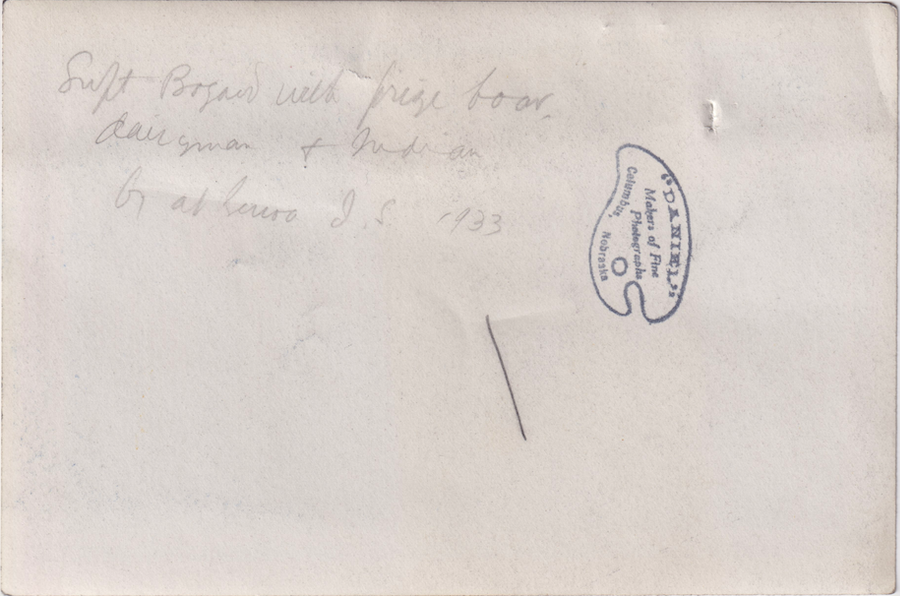 Supt Bogard with prize boar,
dairyman + Indian
by at Genoa I S 1933
"DANIEL"
Makers of Fine
Photographs
Columbus, Nebraska